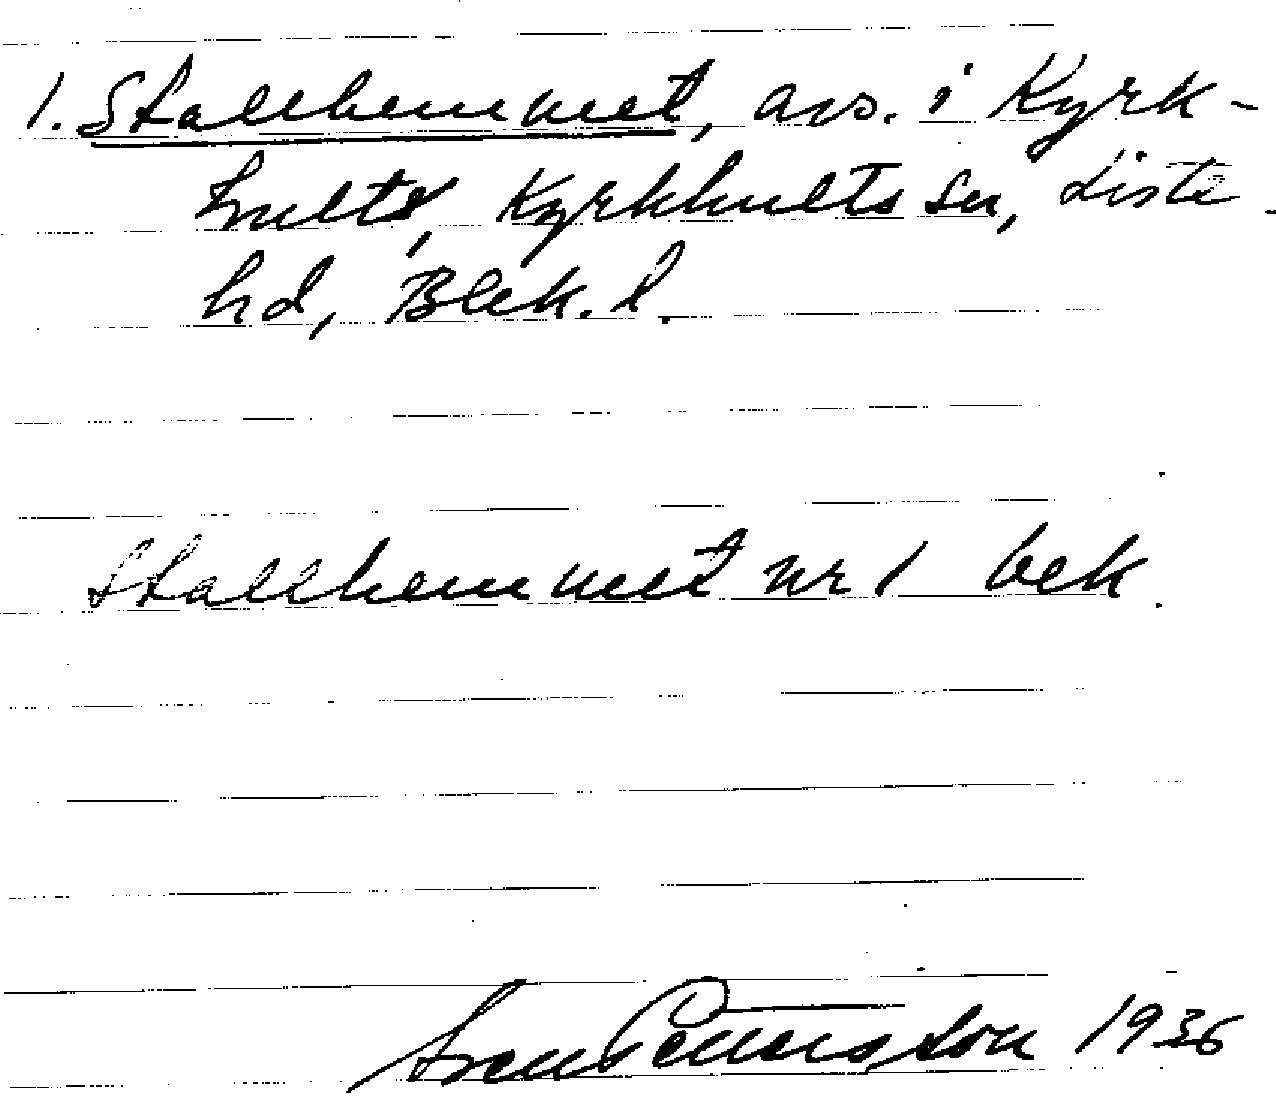 1. Stallhemmet, avs. i Kyrk-
hult, Kyrkhults sn, Liste
hd, Blek. l.
Stallhemmet nr 1 bek.
Sven Pettersson 1936